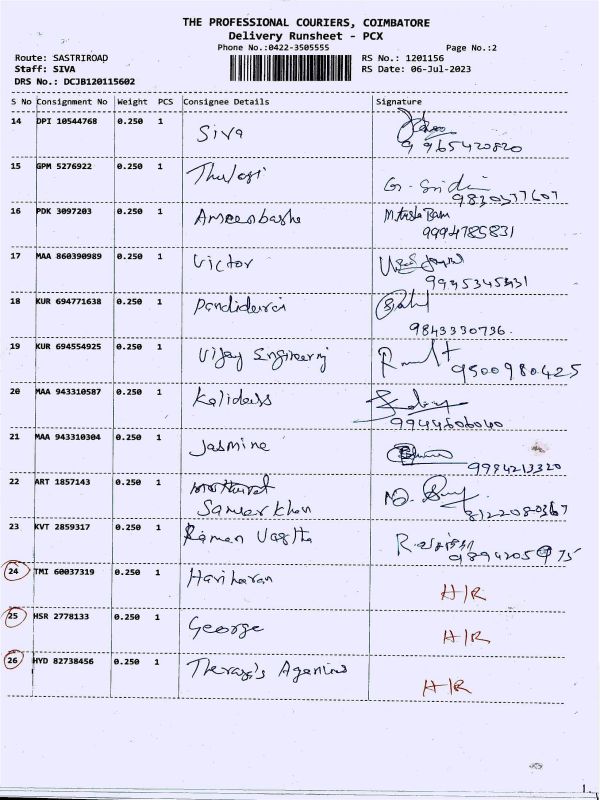 THE PROFESSIONAL COURIERS, COIMBATORE
Delivery Runsheet - PCX
Phone No.:0422-3505555
Page No.:2
Route: SASTRIROAD
RS No.: 1201156
Staff: SIVA
RS Date: 06-Jul-2023
DRS No.: DCJB120115602
S No Consignment No Weight PCS Consignee Details Signature
14 DPI 10544768 0.250 1 Siva
9965420820
15 GPM 5276922 0.250 1 Thulasi
16 PDK 3097203 0.250 1 Ameenbasha
9994785831
17 MAA 860390989 0.250 1 Victor
18 KUR 694771638 0.250 1
9843330736.
19 KUR 694554925 0.250 1 Vijay Engineering
9500980425
20 MAA 943310587 0.250 1 Kalidass
9944606040
21 MAA 943310304 0.250 1 Jasmine
9994213320
22 ART 1857143 0.250 1
Sameer khan
23 KVT 2859317 0.250 1 Raman
24 TMI 60037319 0.250 1 Hariharan
H/R
25 HSR 2778133 0.250 1 George
H/R
26 HYD 82738456 0.250 1
H/R